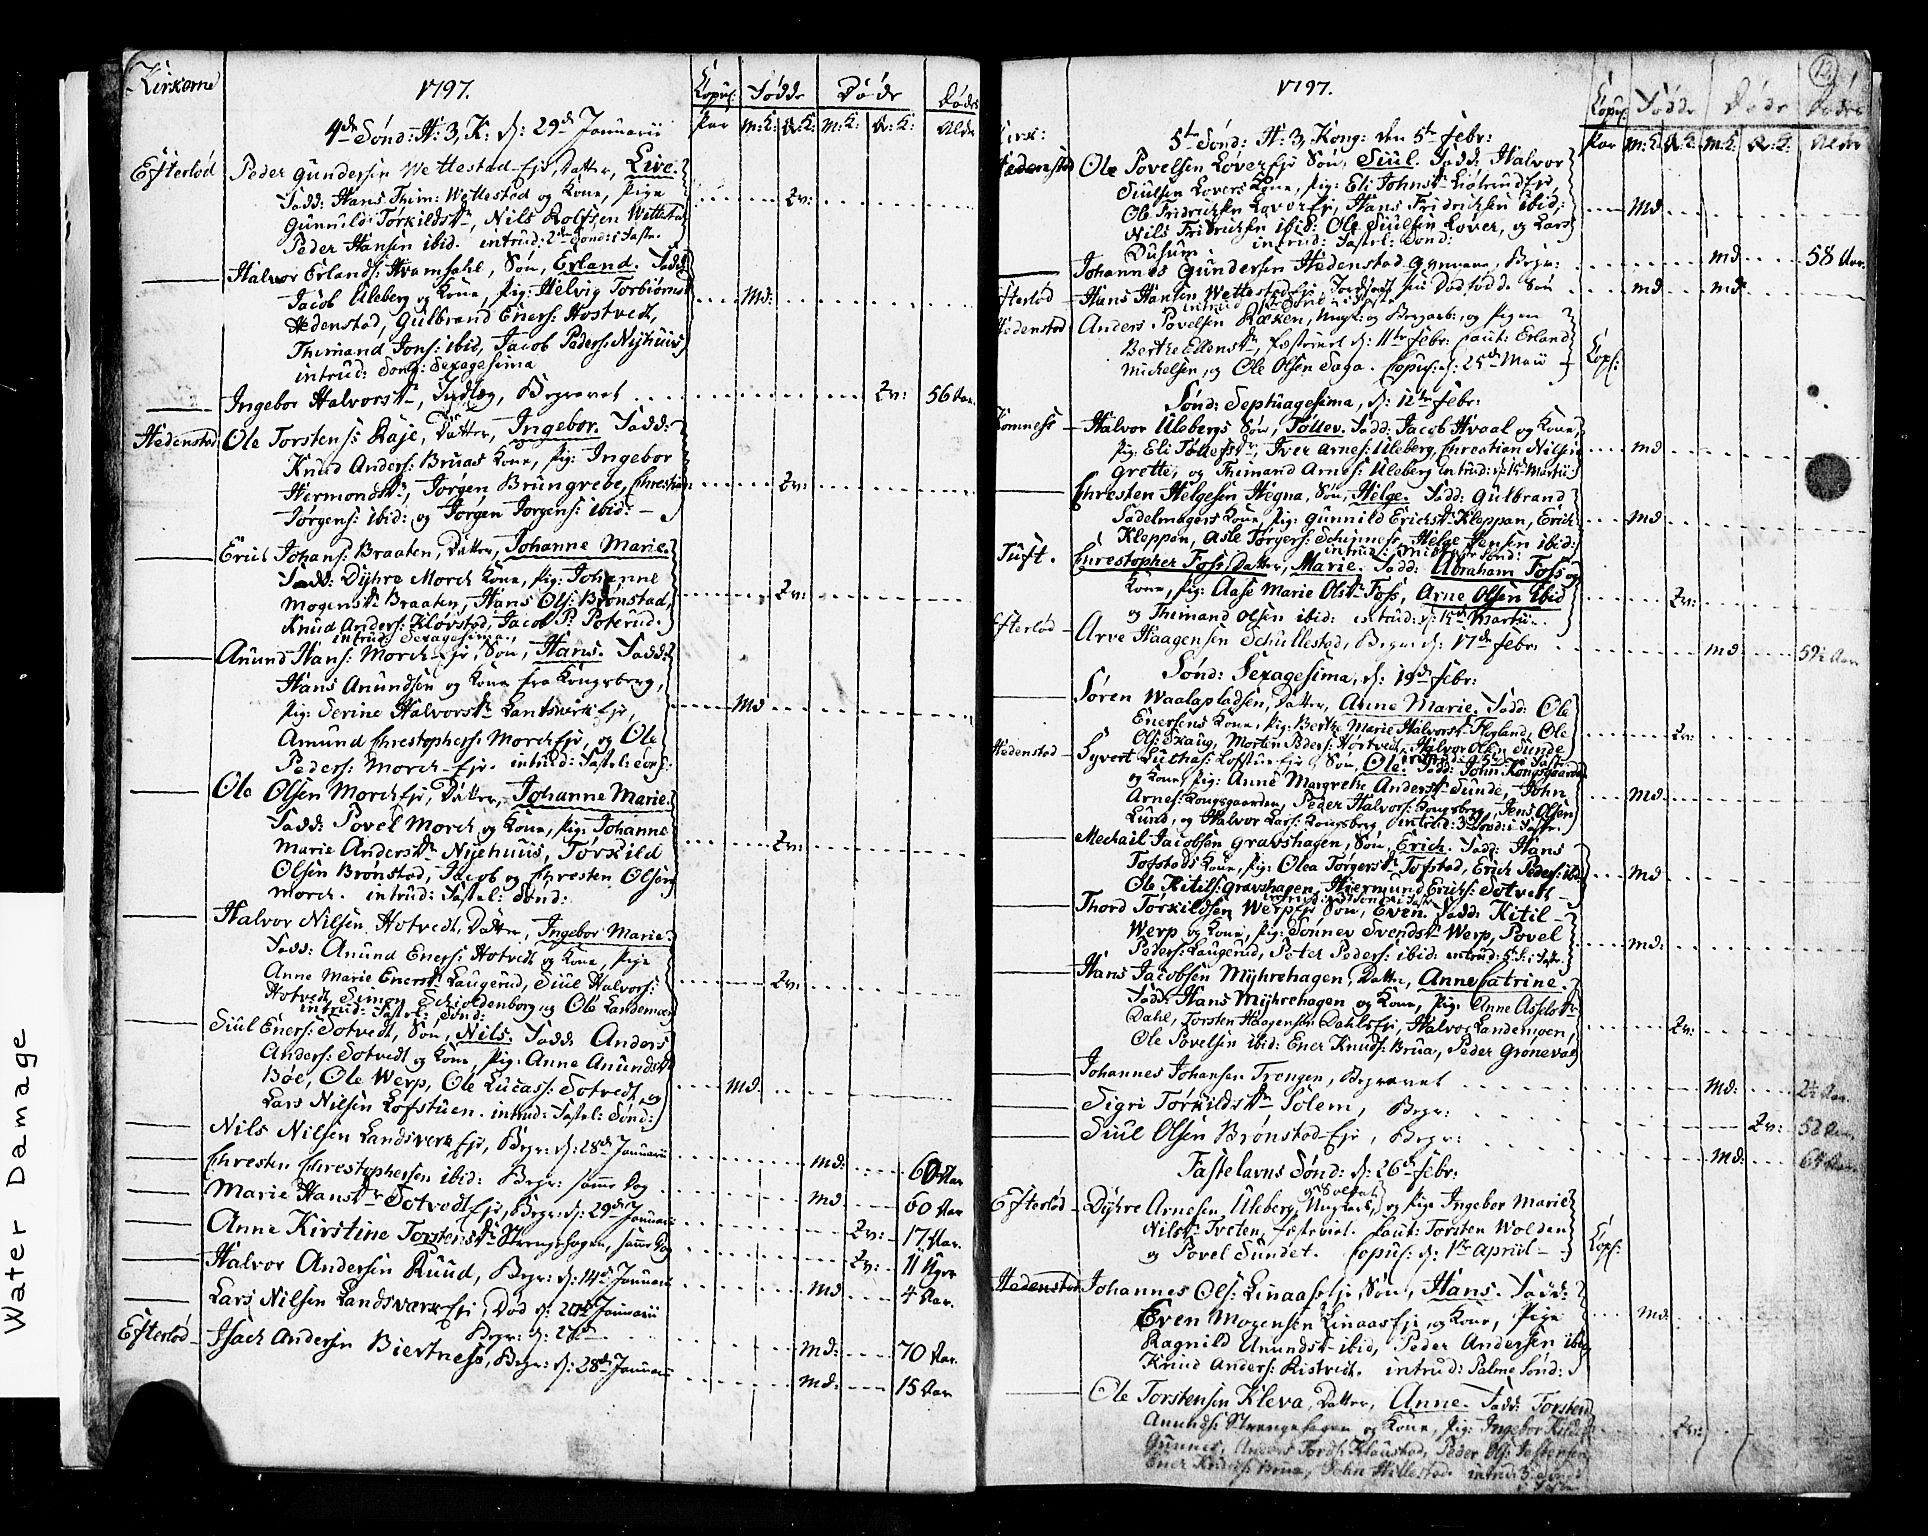 Kirkerne
1797.
Copul: Fødde Døde Dødes
Par M:K: Qv:K: M:K: Qv:K: Alder
4de Sönd: H: 3, K: d: 29de Januarii
Efterlød Peder Gundersen Wettestad-Eje, Datter, Live.
Fadd: Hans Thim: Wettestad og Kone, Pige
Qv:
Gunnild Torkildsdr, Nils Rolfsen Wittestad
Peder Hansen ibid. intrud: 2den Sönd: i Faste.
Halvor Erlands: Hvamsahl, Søn, Erland. Fadd:
Jacob Uleberg og Kone, Pig: Helvig Torbiörns
Md:
Hedenstad, Gulbrand Eners: Hostvedt,
Themand Jons: ibid, Jacob Peders: Nyhuus
intrud: Sönd: Sexagesima
Ingebor Halvorsdr, Indlæg, Begravet Qv: 56 Aar.
Hedenstad Ole Torstens: Raje, Datter, Ingebor. Fadd:
Knud Anders: Bruas Kone, Pig: Ingebor
Hermondsdr, Jørgen Brüngrebe, Christian
Qv:
Jörgens: ibid: og Jörgen Jorgens: ibid:
Erich Johans: Braaten, Datter, Johanne Marie.
Fadd: Dyhre Morch Kone, Pig: Johanne
Mogensdr Braaten, Hans Ols: Brönstad,
Qv:
Knud Anders: Klovstad, Jacob P: Poterud.
intrud: Sexagesima.
Anund Hans: Morch-Eje, Søn, Hans. Fadd:
Hans Anundsen og Kone fra Kongsberg,
Pig: Serine Halvorsdr Landsverk Eje,
Md
Amund Chrestophers: Morch Eje, og Ole
Peders: Morch-Eje. intrud: Fastel: Sönd:
Ole Olsen Morch Eje, Datter, Johanne Marie.
Fadd: Povel Morch og Kone, Pig: Johanne
Marie Andersdr Nyehuus, Törkild
Qv:
Olsen Brönstad, Jacob og Chresten Olsen
Morch. intrud: Fastel: Sönd:
Halvor Nilsen Hotvedt, Datter, Ingebor Marie.
Fadd: Anund Eners: Hotvedt og Kone, Pige
Anne Marie Enersdr Laugerud, Siul Halvors:
Qv:
Hotvedt, Simen Schioldenborg og Ole Landemoen
intrud: Fastel: Sönd:
Siul Eners: Sotvedt, Søn, Nils. Fadd: Anders
Anders: Sotvedt og Kone, Pig: Anne Anundsdr
Böe, Ole Werp, Ole Lucass: Sotvedt, og
Md:
Lars Nilsen Lofstuen. intrud: Fastel: Sönd:
Nils Nilsen Landsverk Eje, Begr: d: 28de Januarii Md: 60 Aar
Chresten Chrestophersen ibid: Begr: samme Dag Md 60 Aar
Marie Hansdr Sotvedt Eje, Begr: d: 29de Januarii Qv: 17 Aar.
Anne Kirstine Torstensdr Strengehagen, samme Dag Qv: 11 Uger
Halvor Andersen Ruud, Begr: d: 14de Januarii Md 4 Aar.
Lars Nilsen Landsværk Eje, Död d: 20de Januarii
Begr: d: 27de Md: 70 Aar.
Efterlød Isach Andersen Biertness, Begr: d: 28de Januarii Md: 15 Aar
1797.
Copul: Fødde Døde Dødes
Kirk: Par M:K: Qv:K: M:K: Qv:K: Alder
5te Sönd: H: 3, Kong: den 5te Febr:
Hedenstad Ole Povelsen Lover Eje Søn, Siul. Fadd: Halvor
Siulsen Lovers Kone, Pig: Eli Johnsdr Liotrud Eje
Ole Fridrichsen Lover Eje, Hans Fridrichsen ibid,
Md
Nils Fridrichsen ibid: Ole Siulsen Lover, og Lars
Dusum. intrud: Fastel: Sönd:
Johannes Gundersen Hedenstad Gammen, Begr: Md 58 Aar.
Efterlød Hans Hansen Wettestad Eje Jordfæst en Dødfødde Søn Md Md
Hedenstad Anders Povelsen Ræken, Ungk: og Bergarb:, og Pigen
Berthe Ellensdr, Festerret d: 11te Febr: Caut: Erland
Michelsen, og Ole Olsen Saga. Copul: d: 25de Maii Cops:
Sönd: Septuagesima, d: 12te Febr:
Komness Halvor Ulebergs Søn, Töllev. Fadd: Jacob Hvaal og Kone,
Pig: Eli Töllefsdr, Iver Arnes: Uleberg, Chrestian Nilsen
Md
Grette, og Themand Arnes: Uleberg intrud: d: 1te Martii:
Chresten Helgesen Hegna, Søn, Helge. Fadd: Gulbrand
Sadelmagers Kone, Pig: Gunnild Erichsdr Kleppan, Erich
Md
Kleppan, Asle Torgers: Schinnes, Helge Jensen ibid:
intrud: Midfaste Sönd:
Tuft. Chrestopher Foss, Datter, Marie. Fadd: Abraham Foss og
Kone, Pig: Aase Marie Olsdr Foss, Arne Olsen ibid
Qv:
og Themand Olsen ibid: intrud: d: 1te Martii.
Efterlød Arve Haagensen Schullestad, Begr: d: 17de Febr: Md 59½ Aar
Sönd: Sexagesima, d: 19de Febr:
Sören Waalapladsen, Datter, Anne Marie. Fadd: Ole
Enersens Kone, Pig: Berthe Marie Halvorsdr Flogland, Ole
Ols: Skaug, Morten Peders: Hortvedt, Halvor Olsen Sunde
Qv:
Hedenstad Syvert Luchas: Lofstue Eje, Søn, Ole. Fadd: John Kongsgaarden
og Kone, Pig: Anne Margrethe Andersdr Sunde, John
Arnes: Kongsgaarden, Peder Halvors: Kongsberg, Jens Olsen
Md:
Lund, og Halvor Lars: Kongsberg. intrud: 3de Sönd: i Faste.
Mechail Jacobsen Gravshagen, Søn, Erich. Fadd: Hans
Tofstads Kone, Pig: Olea Torgersdr Tofstad, Erich Peders: ibid
Md
Ole Kitils: Gravshagen, Hiermund Erichs: Sotvedt
Thord Torkildsen Werp Eje Søn, Even. Fadd: Kitil
Werp og Kone, Pig: Sonnev Svendsdr Werp, Povel
Md:
Peders: Laugerud, Peter Peders: ibid: intrud: 5: S: i Faste.
Hans Jacobsen Myhrehagen, Datter, Anne Catrine.
Fadd: Hans Myhrehagen og Kone, Pig: Anne Asslesdr
Dahl, Torsten Haagensen Dahls Eje, Halvor Landemoen,
Qv:
Ole Povelsen ibid: Ener Knuds: Brua, Peder Gronevold
Johannes Johansen Trengen, Begravet Md: 2½ Aar.
Sigri Torkildsdr Solem, Begr: Qv: 52 Aar.
Siul Olsen Brønstad-Eje, Begr: Md: 64 Aar.
Fastelavns Sönd: d: 26de Febr:
Efterlød Dyhre Arnesen Uleberg, Ungkarl, og Pige Ingebor Marie
Nilsdr Tveten, Festerviet. Caut: Torsten Wolden
og Povel Sundet. Copul: d: 1te Apriil Cops:
Hedenstad Johannes Ols: Linaas Eje, Søn, Hans. Fadd:
Even Mogensen Linaas Eje og Kone, Pige
Md:
Ragnild Anundsdr ibid, Peder Andersen ibid
Knud Anders: Ristvedt. intrud: Palme Sönd:
Ole Torstensen Kleva, Datter, Anne. Fadd: Torsten
Anunds: Strengehagen og Kone, Pig: Ingebor
Qv:
Gunnes, Anders Tords: Klaustad, Peder Ols:
Ener Knuds: Brua, John Hillestad. intrud: 3de Sönd:
i Faste
Water Damage